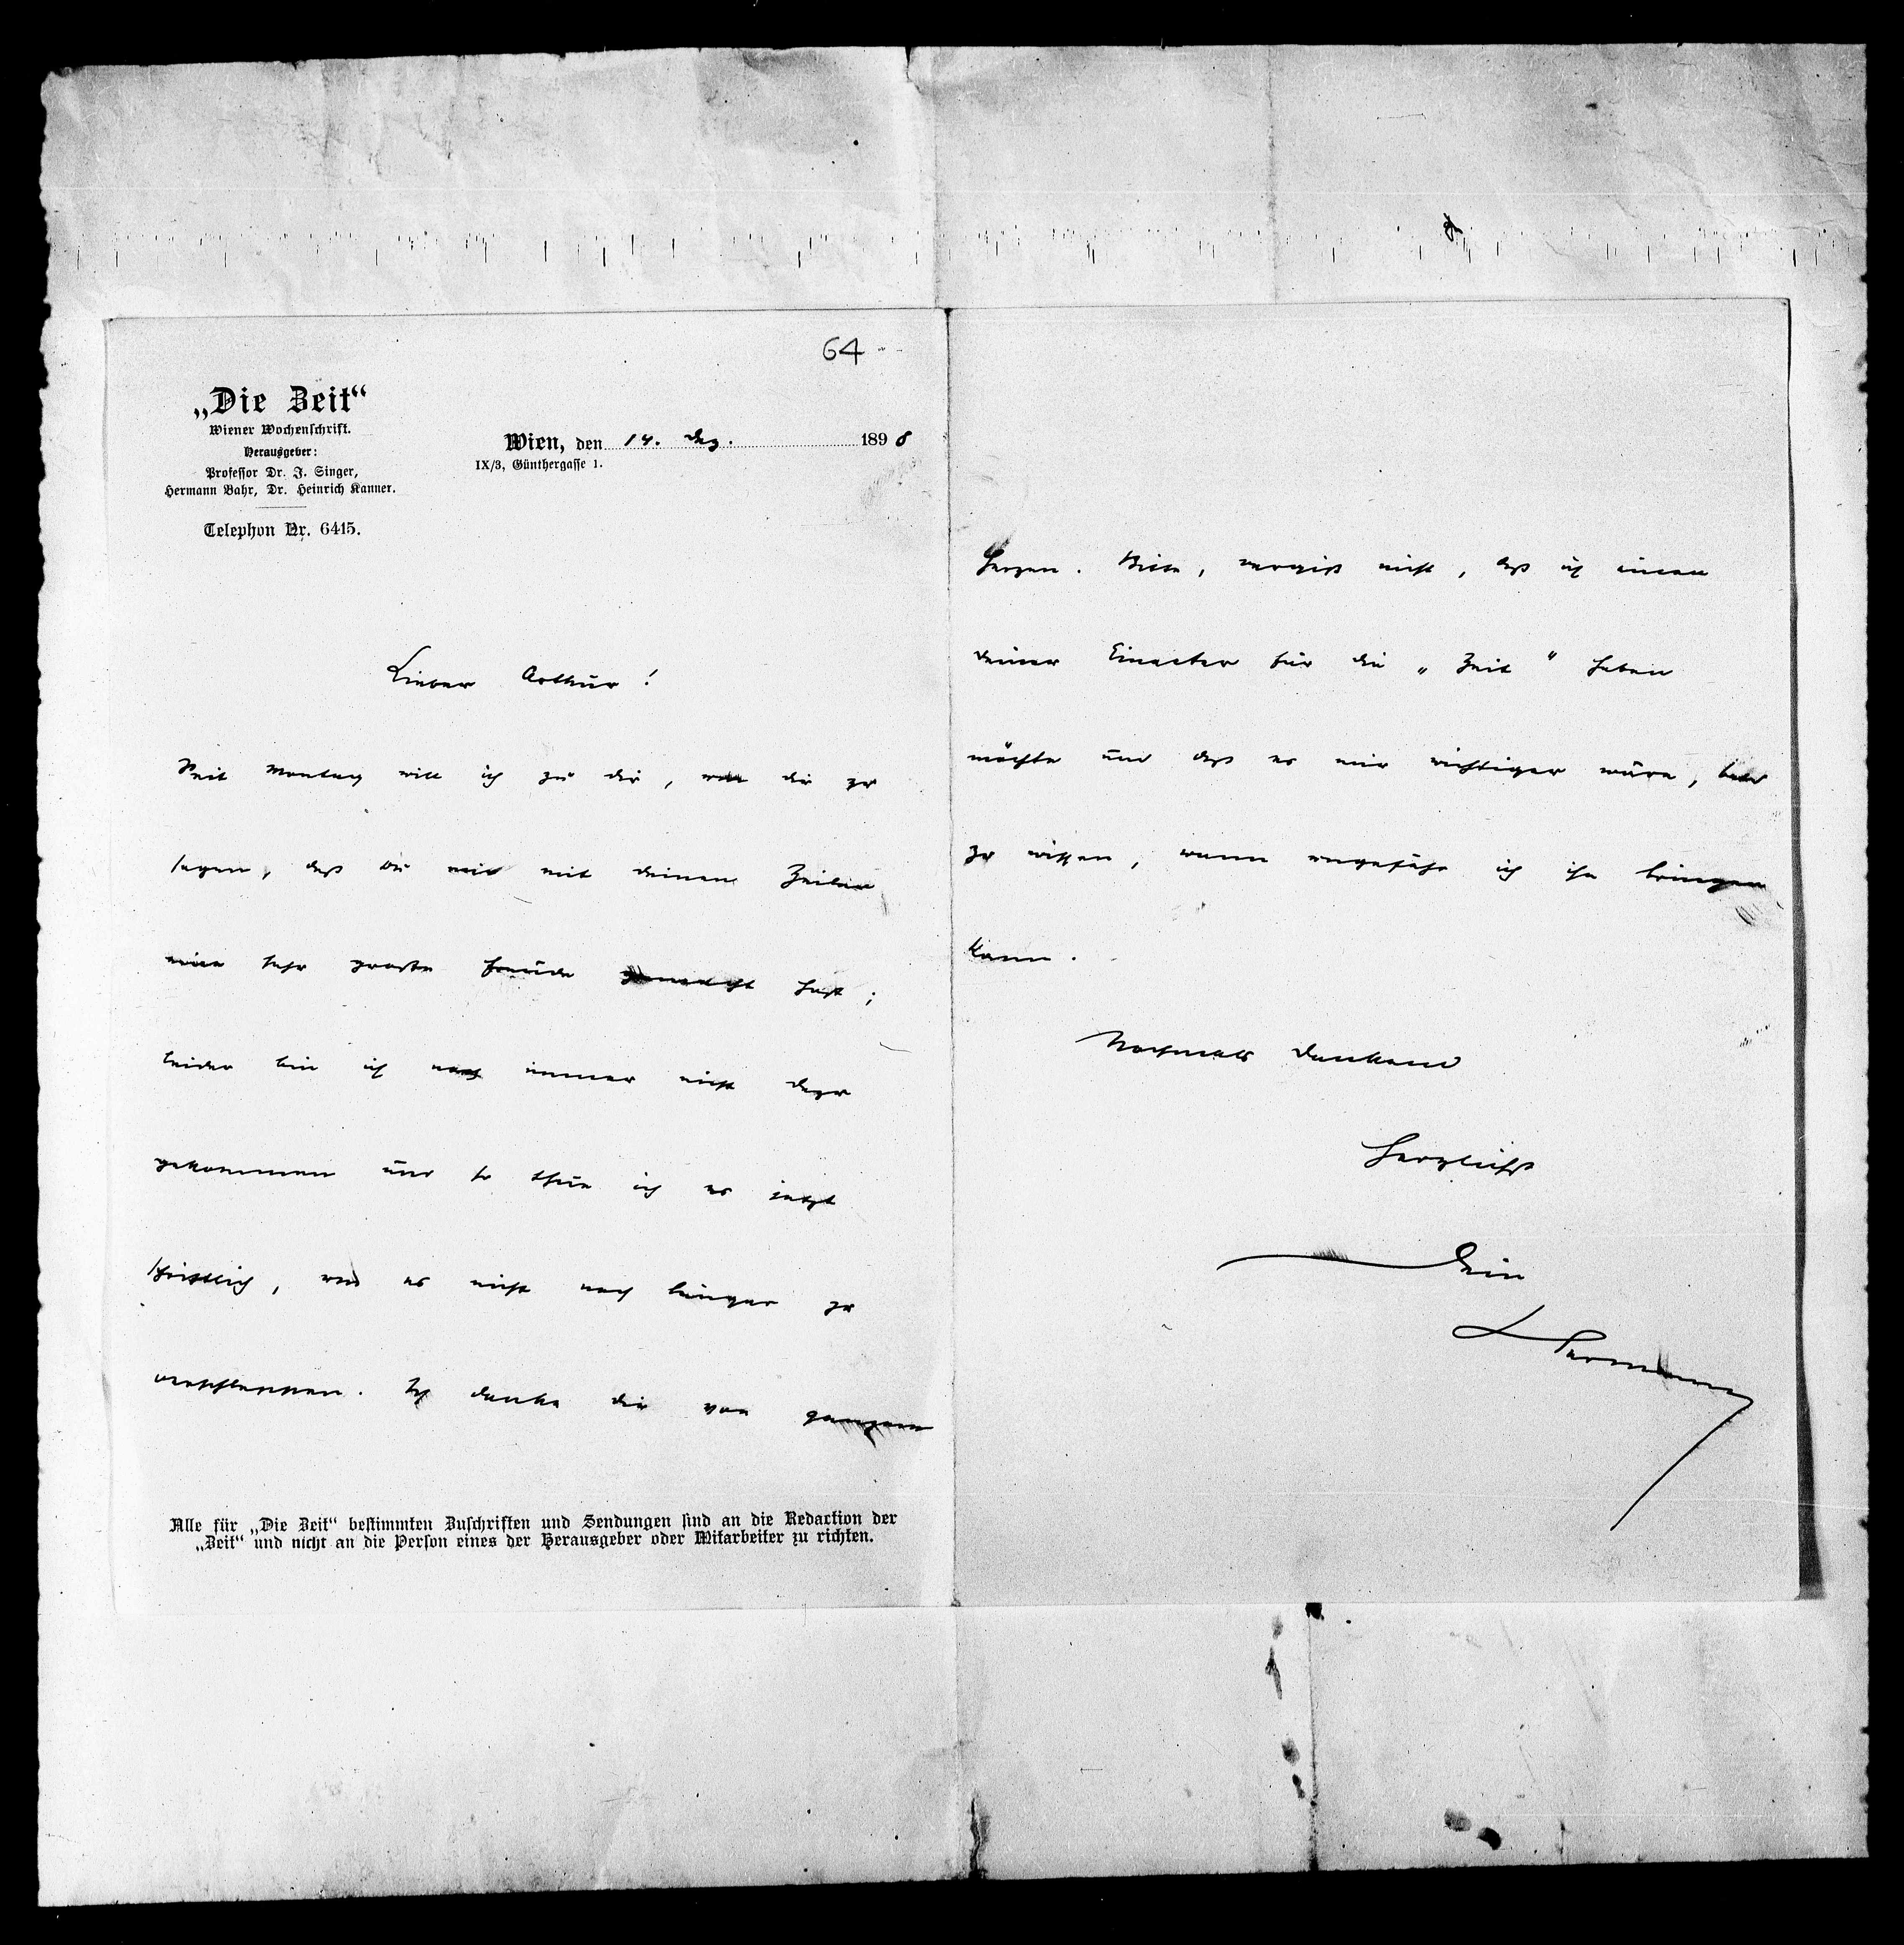 64
„Die Zeit“
Wiener Wochenschrift.
Herausgeber:
Professor Dr. J. Singer,
Hermann Bahr, Dr. Heinrich Kanner.
Telephon Nr. 6415.
Wien, den 14. Dez. 1898
IX/3, Günthergasse 1.
Lieber Arthur!
Seit Montag will ich zu dir, um dir zu
sagen, daß Du mir mit deinen Zeilen
eine sehr große Freude gemacht hast;
leider bin ich noch immer nicht dazu
gekommen und so thue ich es jetzt
schriftlich, um es nicht noch länger zu
verschleppen. Ich danke dir von ganzem
Alle für „Die Zeit“ bestimmten Zuschriften und Sendungen sind an die Redaction der
„Zeit“ und nicht an die Person eines der Herausgeber oder Mitarbeiter zu richten.
Herzen. Bitte, vergiß nicht, daß ich einen
deiner Einacter für die „Zeit“ haben
möchte und daß es mir wichtiger wäre, bald
zu wissen, wann ungefähr ich ihn bringen
kann.
Nochmals dankend
Herzlichst
Dein
Hermann